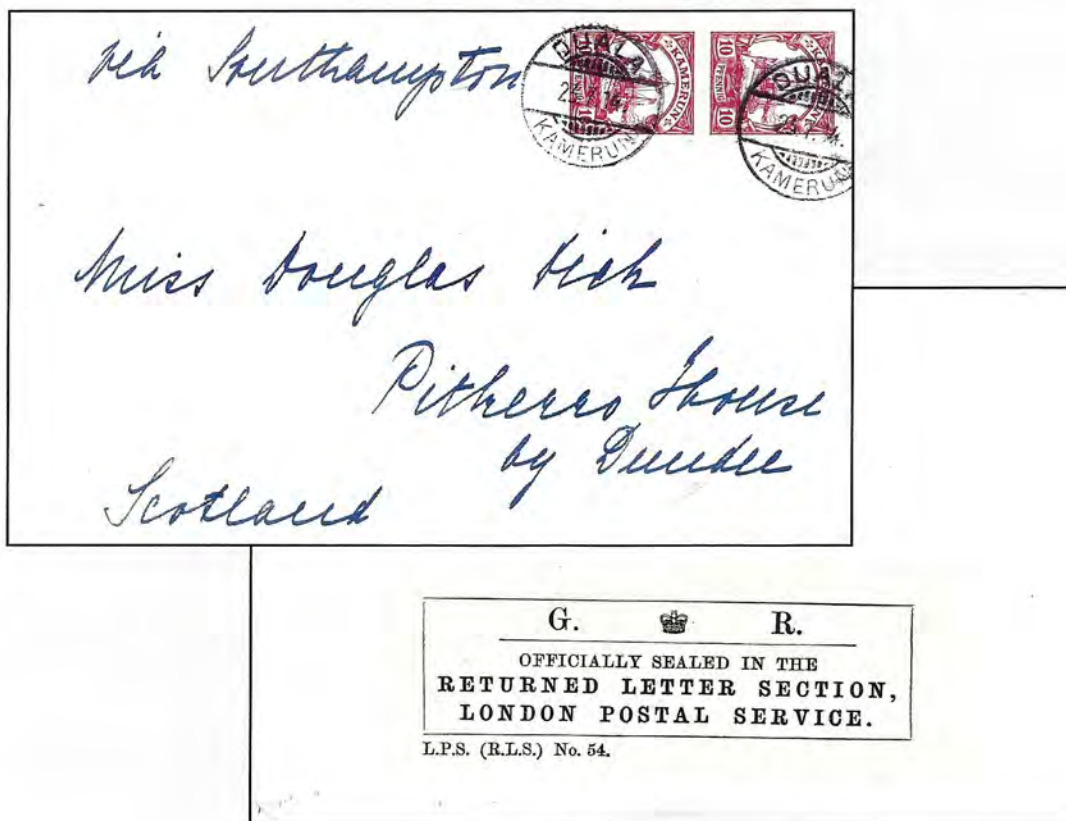 via Southampton
DUALA
KAMERUN
KAMERUN
10
PFENNIG
DUALA
KAMERUN
Miss Douglas Dick
Pitkerro House
by Dundee
Scotland
G. R.
OFFICIALLY SEALED IN THE
RETURNED LETTER SECTION,
LONDON POSTAL SERVICE.
L.P.S. (R.L.S.) No. 54.